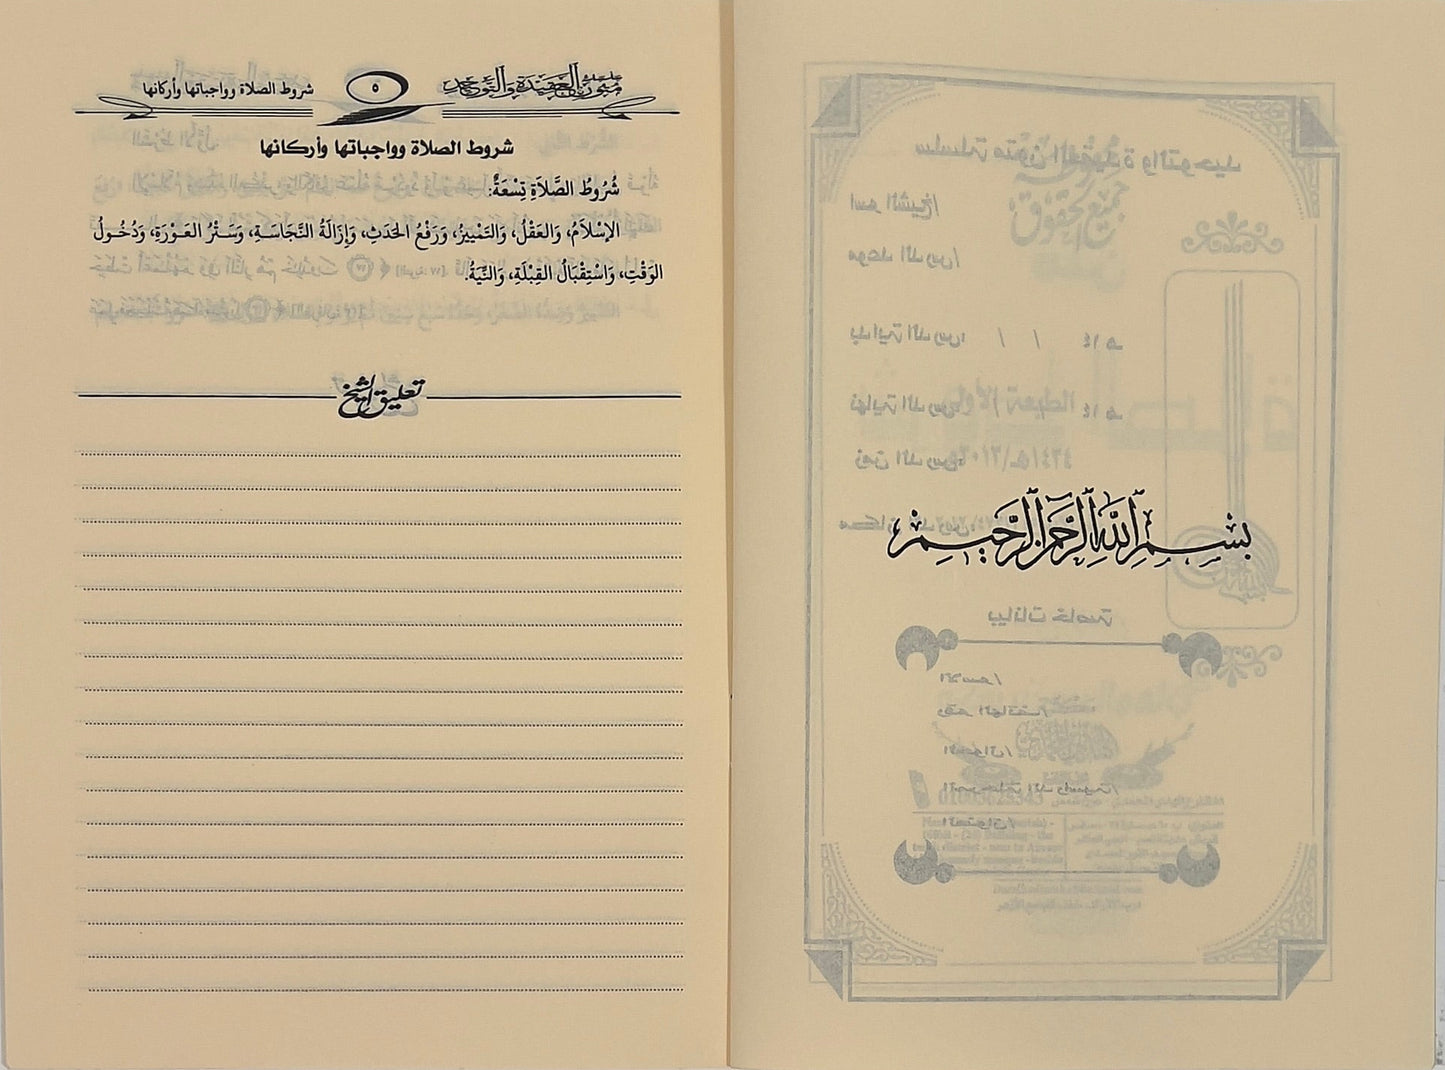 بسم الله الرحمن الرحيم
سلسلة متون العقيدة والتوحيد
٥
شروط الصلاة وواجباتها وأركانها
شروط الصلاة وواجباتها وأركانها
شُرُوطُ الصَّلَاةِ تِسْعَةٌ:
الإِسْلَامُ، وَالعَقْلُ، وَالتَّمْيِيزُ، وَرَفْعُ الحَدَثِ، وَإِزَالَةُ النَّجَاسَةِ، وَسَتْرُ العَوْرَةِ، وَدُخُولُ
الوَقْتِ، وَاسْتِقْبَالُ القِبْلَةِ، وَالنِّيَّةُ.
تعليق الشيخ